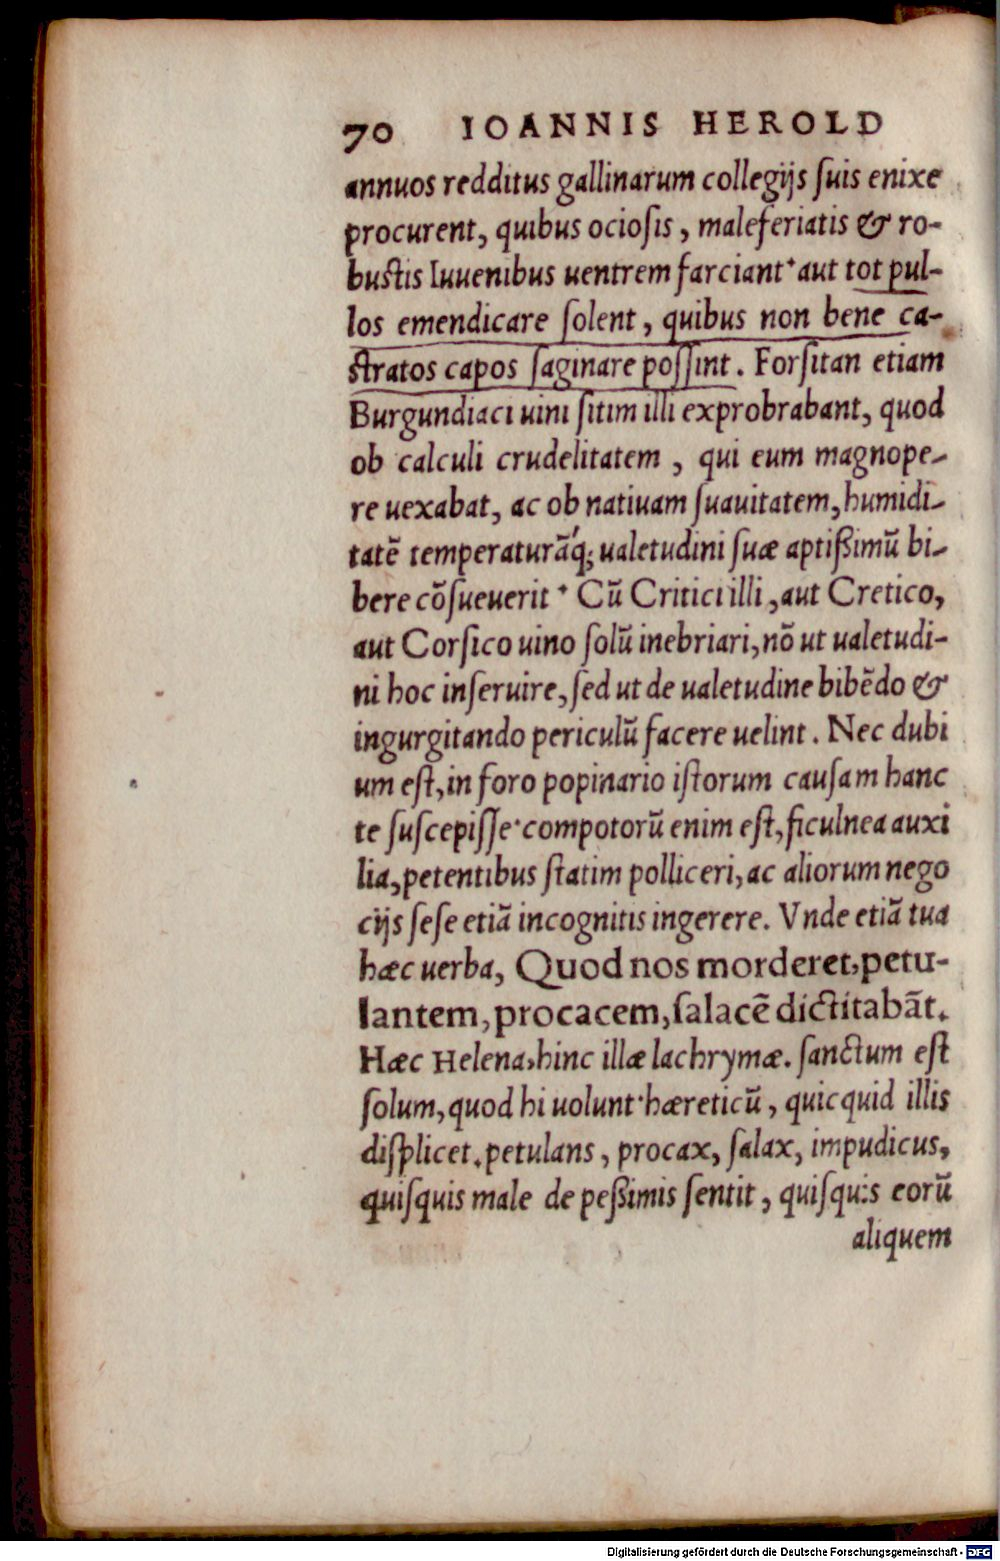 70 IOANNIS HEROLD
annuos redditus gallinarum collegijs ſuis enixe
procurent, quibus ocioſis, maleferiatis & ro-
buſtis Iuuenibus uentrem farciant· aut tot pul-
los emendicare ſolent, quibus non bene ca-
ſtratos capos ſaginare poſſint. Forſitan etiam
Burgundiaci uini ſitim illi exprobrabant, quod
ob calculi crudelitatem, qui eum magnope-
re uexabat, ac ob natiuam ſuauitatem, humidi-
tatē temperaturāq́; ualetudini ſuæ aptißimū bi-
bere cōſueuerit· Cū Critici illi, aut Cretico,
aut Corſico uino ſolū inebriari, nō ut ualetudi-
ni hoc inſeruire, ſed ut de ualetudine bibēdo &
ingurgitando periculū facere uelint. Nec dubi
um eſt, in foro popinario iſtorum cauſam hanc
te ſuſcepiſſe· compotorū enim eſt, ficulnea auxi
lia, petentibus ſtatim polliceri, ac aliorum nego
cijs ſeſe etiā incognitis ingerere. Vnde etiā tua
hæc uerba, Quod nos morderet, petu-
lantem, procacem, ſalacē dictitabāt.
Hæc Helena, hinc illæ lachrymæ. ſanctum eſt
ſolum, quod hi uolunt· hæreticū, quicquid illis
diſplicet. petulans, procax, ſalax, impudicus,
quiſquis male de peßimis ſentit, quiſquis eorū
aliquem
Digitalisierung gefördert durch die Deutsche Forschungsgemeinschaft - DFG